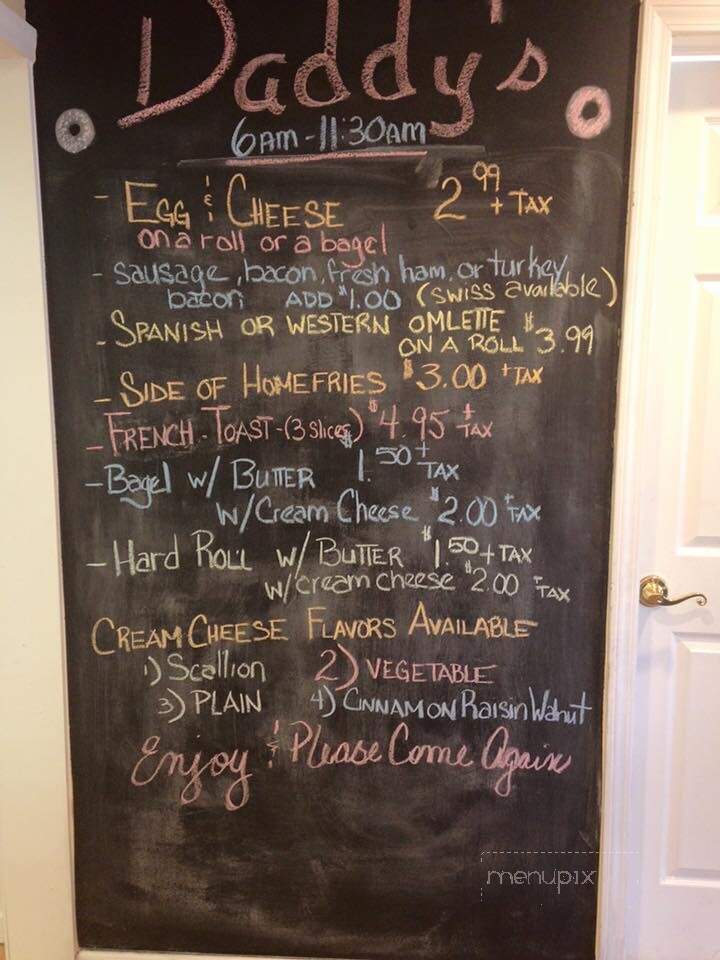 Daddy's
6AM-11:30AM
- EGG & CHEESE 2.99 + TAX
on a roll or a bagel
- sausage, bacon, fresh ham, or turkey
bacon ADD $1.00 (swiss available)
- SPANISH OR WESTERN OMLETTE $3.99
ON A ROLL
- SIDE OF HOMEFRIES $3.00 + TAX
- FRENCH-TOAST-(3 slices) $4.95 + TAX
- Bagel w/ BUTTER $1.50 + TAX
w/Cream Cheese $2.00 + TAX
- Hard Roll w/ BUTTER $1.50 + TAX
w/cream cheese $2.00 + TAX
CREAM CHEESE FLAVORS AVAILABLE
1) Scallion 2) VEGETABLE
3) PLAIN 4) CINNAMON Raisin Walnut
Enjoy & Please Come Again
menupix